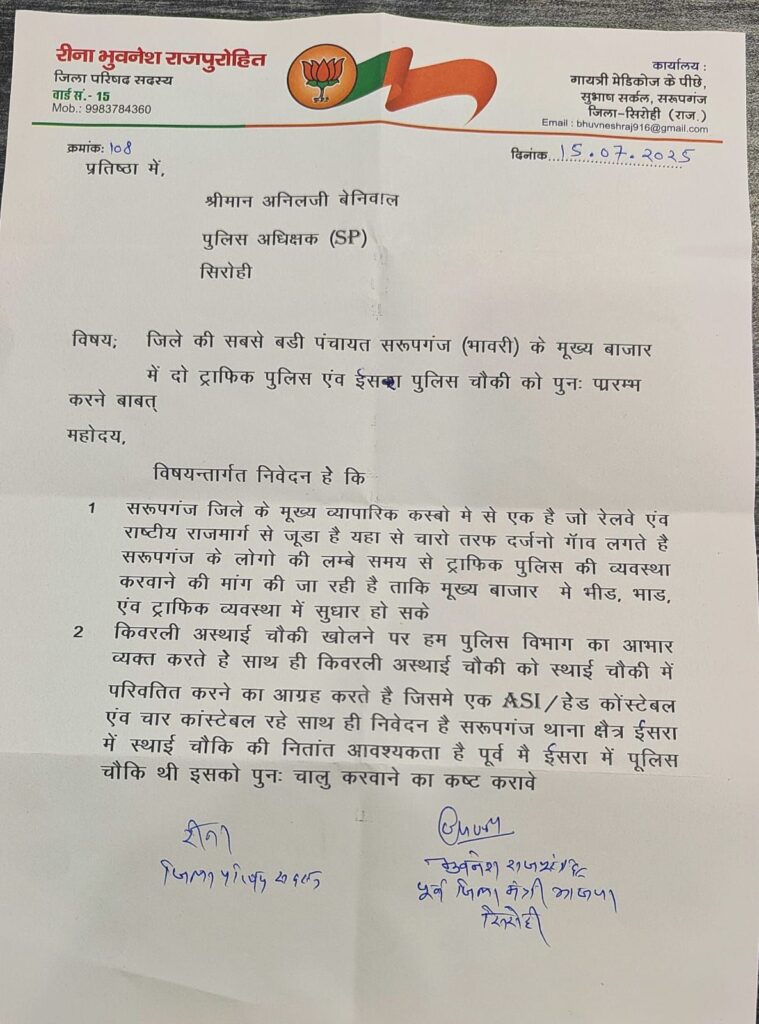 रीना भुवनेश राजपुरोहित
जिला परिषद सदस्य
वार्ड सं.- 15
Mob.: 9983784360
कार्यालय :
गायत्री मेडिकोज के पीछे,
सुभाष सर्कल, सरूपगंज
जिला-सिरोही (राज.)
Email : bhuvneshraj916@gmail.com
क्रमांक: 108
दिनांक 15.07.2025
प्रतिष्ठा में,
श्रीमान अनिलजी बेनिवाल
पुलिस अधिक्षक (SP)
सिरोही
विषय; जिले की सबसे बडी पंचायत सरूपगंज (भावरी) के मूख्य बाजार
में दो ट्राफिक पुलिस एंव ईसरा पुलिस चौकी को पुनः प्रारम्भ
करने बाबत्
महोदय,
विषयन्तार्गत निवेदन हे कि
1 सरूपगंज जिले के मूख्य व्यापारिक कस्बो मे से एक है जो रेलवे एंव
राष्टीय राजमार्ग से जूडा है यहा से चारो तरफ दर्जनो गॅाव लगते है
सरूपगंज के लोगो की लम्बे समय से ट्राफिक पुलिस की व्यवस्था
करवाने की मांग की जा रही है ताकि मूख्य बाजार मे भीड, भाड,
एंव ट्राफिक व्यवस्था में सुधार हो सके
2 किवरली अस्थाई चौकी खोलने पर हम पुलिस विभाग का आभार
व्यक्त करते हे साथ ही किवरली अस्थाई चौकी को स्थाई चौकी में
परिवतित करने का आग्रह करते है जिसमे एक ASI/हेड कोंस्टेबल
एंव चार कांस्टेबल रहे साथ ही निवेदन है सरूपगंज थाना क्षैत्र ईसरा
में स्थाई चौकि की नितांत आवश्यकता है पूर्व मै ईसरा में पूलिस
चौकि थी इसको पुनः चालु करवाने का कष्ट करावे
रीना
जिला परिषद सदस्य
भुवनेश राजपुरोहित
पूर्व जिला मंत्री भाजपा
सिरोही